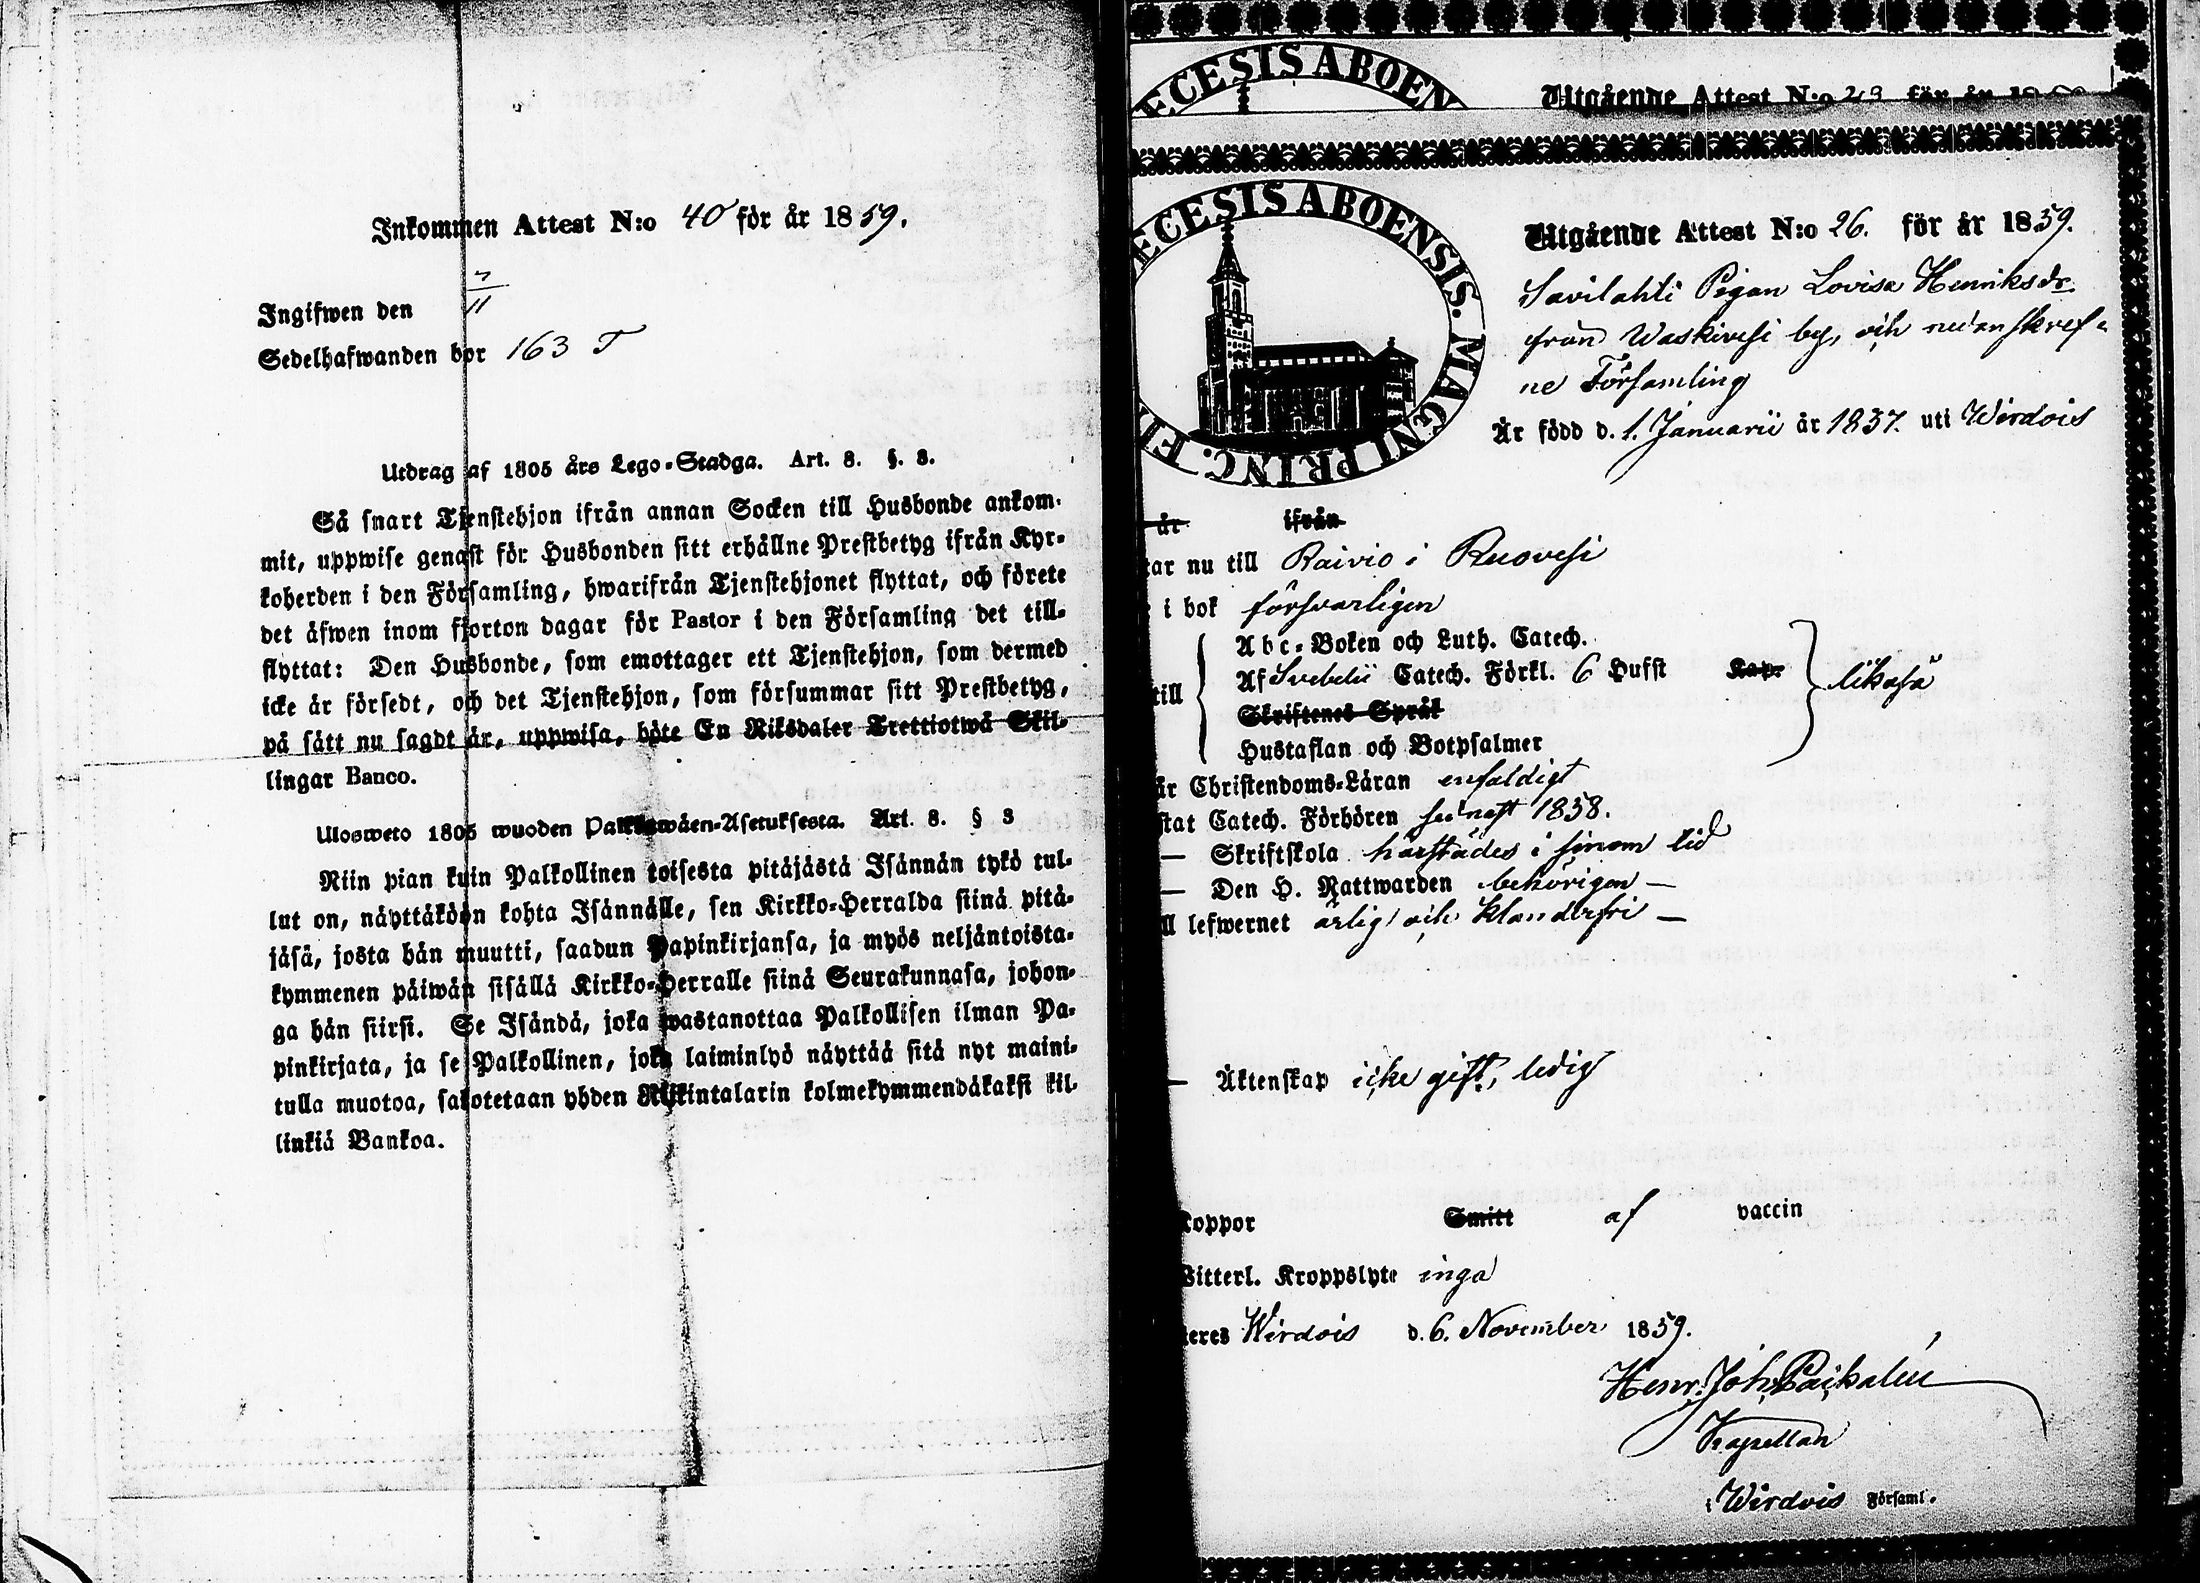 Inkommen Attest N:o 40 för år 1859.
Ingifwen den 7/11
Sedelhafwanden bor 163 T
Utdrag af 1805 års Lego-Stadga. Art. 8. §. 8.
Så snart Tjenstehjon ifrån annan Socken till Husbonde ankom-
mit, uppwise genast för Husbonden sitt erhållne Prestbetyg ifrån Kyr-
koherden i den Församling, hwarifrån Tjenstehjonet flyttat, och förete
det äfwen inom fjorton dagar för Pastor i den Församling det till-
flyttat: Den Husbonde, som emottager ett Tjenstehjon, som dermed
icke är försedt, och det Tjenstehjon, som försummar sitt Prestbetyg,
på sätt nu sagdt är, uppwisa, böte En Riksdaler Trettiotwå Skil-
lingar Banco.
Ulosweto 1805 wuoden Palkkawäen-Asetuksesta. Art. 8. § 8
Niin pian kuin Palkollinen toisesta pitäjästä Isännän tykö tul-
lut on, näyttäköön kohta Isännälle, sen Kirkko-Herralda siinä pitä-
jäsä, josta hän muutti, saadun Papinkirjansa, ja myös neljäntoista-
kymmenen päiwän sisällä Kirkko-Herralle siinä Seurakunnasa, johon-
ga hän siirsi. Se Isändä, joka wastanottaa Palkollisen ilman Pa-
pinkirjata, ja se Palkollinen, joka laiminlyö näyttää sitä nyt maini-
tulla muotoa, sakotetaan yhden Riikintalarin kolmekymmendäkaksi kil-
linkiä Bankoa.
ECESIS ABOEN
Utgående Attest N:o 29 för år
ECESIS ABOENSIS. MAGNI PRINC. F
Utgående Attest N:o 26. för år 1859.
Savilahti Pigan Lovisa Henriksdr
från Waskivesi by, och nedanskref-
ne Församling
Är född d. 1. Januarii år 1837. uti Wirdois
år ifrån
ar nu till Raivio i Ruovesi
i bok försvarligen
till
Abc-Boken och Luth. Catech.
Af Svebelii Catech. Förkl. 6 Hufst Kap.
Skriftenes Språk
Hustaflan och Botpsalmer
likaså
är Christendoms-Läran enfaldigt
stat Catech. Förhören senast 1858.
— Skriftskola härstädes i sinom tid
— Den H. Nattwarden behörigen —
ll lefwernet ärlig och klanderfri —
— Äktenskap icke gift, ledig
koppor Smitt af vaccin
Witterl. Kroppslyte inga
teres Wirdois d. 6. November 1859.
Henr. Joh. Paikalén
Kapellan
i Wirdois Församl.